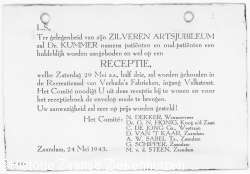 L.S.
Ter gelegenheid van zijn ZILVEREN ARTSJUBILEUM
zal Dr. KUMMER namens patiënten en oud-patiënten een
huldeblijk worden aangeboden en wel op een
RECEPTIE,
welke Zaterdag 29 Mei a.s., half drie, zal worden gehouden in
de Recreatiezaal van Verkade's Fabrieken, ingang Volksstraat.
Het Comité noodigt U uit deze receptie bij te wonen en voor
het receptieboek de envelop mede te brengen.
Uw aanwezigheid zal zeer op prijs worden gesteld!
Het Comité: N. DEKKER, Wormerveer
Dr. G. N. HONIG, Koog a/d Zaan
C. DE JONG Gz., Westzaan
E. VAN 'T KAAR, Zaandam
A. W. SABEL Jz., Zaandam
G. SCHIPPER, Zaandam
Zaandam, 24 Mei 1943. M. v. d. STEEN, Zaandam